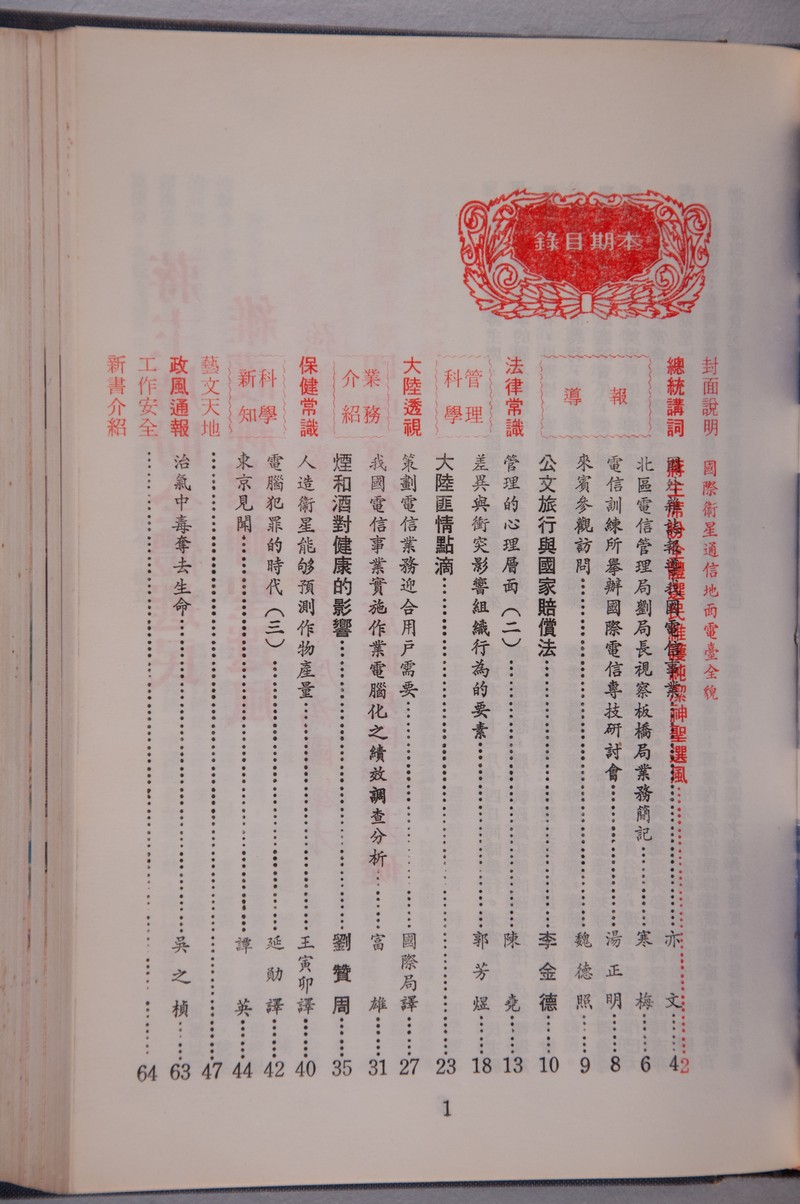 本期目錄
封面說明　國際衛星通信地面電臺全貌
總統講詞　蔣主席盼全體選民維護純潔神聖選風……2
亦文……4
報導
北區電信管理局劉局長視察板橋局業務簡記……寒梅……6
電信訓練所舉辦國際電信專技研討會……湯正明……8
來賓參觀訪問……魏德照……9
公文旅行與國家賠償法……李金德……10
法律常識
管理的心理層面(二)……陳堯……13
管理科學
差異與衝突影響組織行為的要素……郭芳煜……18
大陸匪情點滴……23
大陸透視
策劃電信業務迎合用戶需要……國際局譯……27
業務介紹
我國電信事業實施作業電腦化之績效調查分析……富雄……31
煙和酒對健康的影響……劉贊周……35
保健常識
人造衛星能够預測作物產量……王寅卯譯……40
科學新知
電腦犯罪的時代(三)……延勛譯……42
東京見聞……譚英……44
藝文天地……47
政風通報
沼氣中毒奪去生命……吳之楨……63
工作安全……64
新書介紹
1